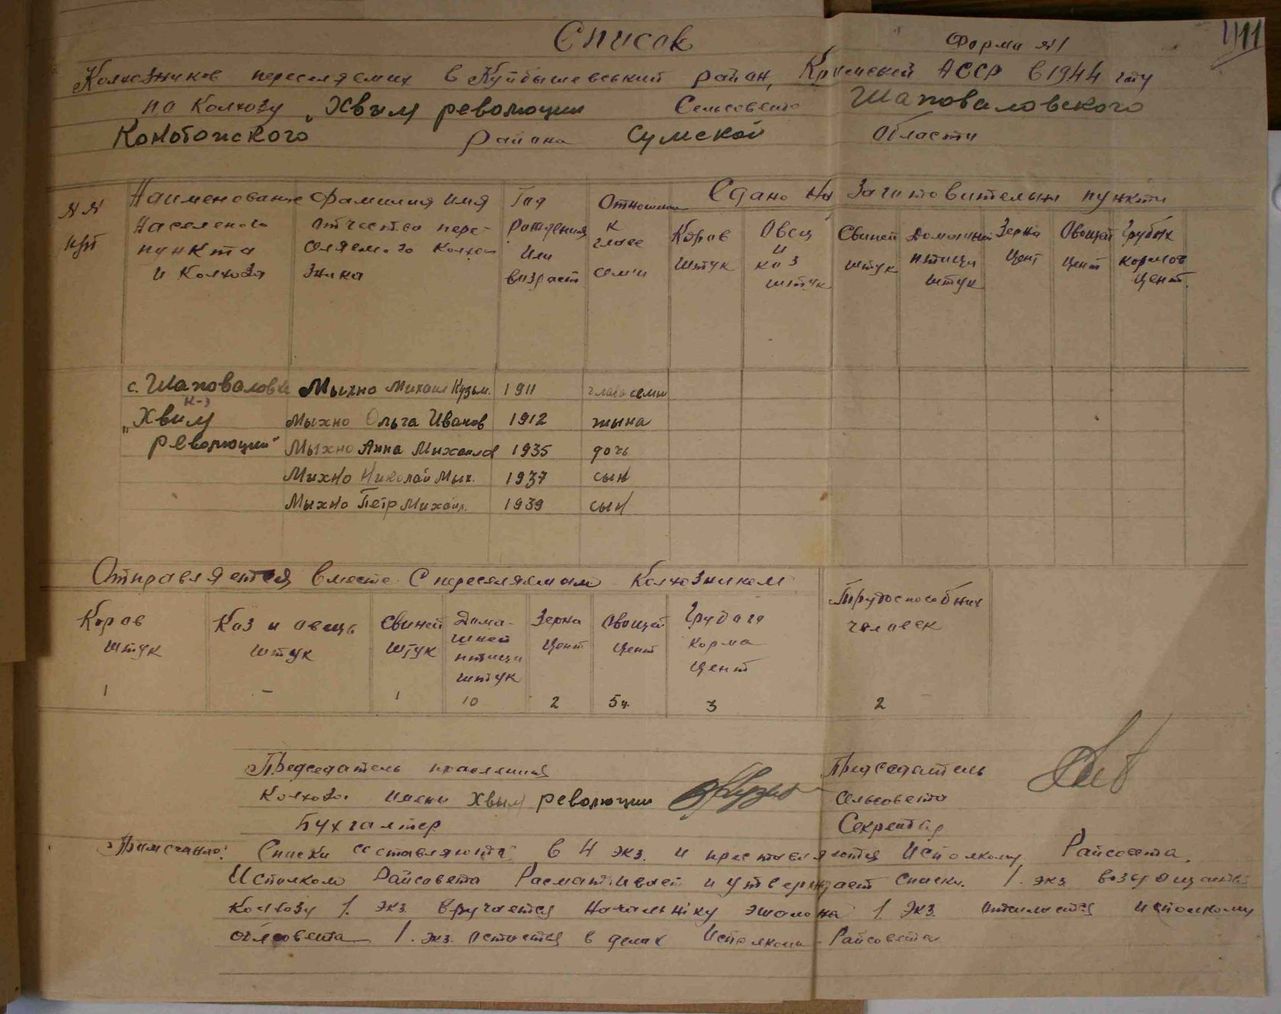 1111
Список
Форма №1
Колхозников переселяемих в Куйбышевський район, Кримской АССР в 1944 году
по Колхозу „Хвыля революции Сельсовета Шаповаловского
Конотопского района Сумской области
№№ п/п
Наименование населеного пункта и колхоза
Фамилия имя отчество пере- селяемого колхоз- ника
Год рождения или возраст
Отношение к главе семьи
Сдано на Заготовительн пункти
Коров штук
Овец и коз штук
Свиней штук
Домашней птици штук
Зерна цент
Овощей цент
Грубых кормов цент.
с. Шаповаловка Мыхно Михаил Кузьм. 1911 глава семьи
к-з
„Хвиля Мыхно Ольга Иванов 1912 жына
революции" Мыхно Анна Михаилов 1935 дочь
Михно Николай Мих. 1937 сын
Мыхно Пётр Михаил. 1939 сын
Отправляется вместе с переселяемым колхозником
Коров штук
Коз и овець штук
Свиней штук
Дома- шней птици штук
Зерна цент
Овощей цент
Грубого корма цент
Трудоспособних человек
1 - 1 10 2 5ч 3 2
Председатель правления Председатель
Колхоза имени Хвыля революции Сельсовета
Бухгалтер Секретар
Примечание: Списки составляются в 4 экз. и представляется Исполкому Райсовета.
Исполком Райсовета Расматривает и утверждает списки. 1. экз возвращается
Колхозу 1. экз вручается начальніку эшалона 1. экз. отсилается исполкому
облсовета 1. экз. остается в делах Исполкома Райсовета